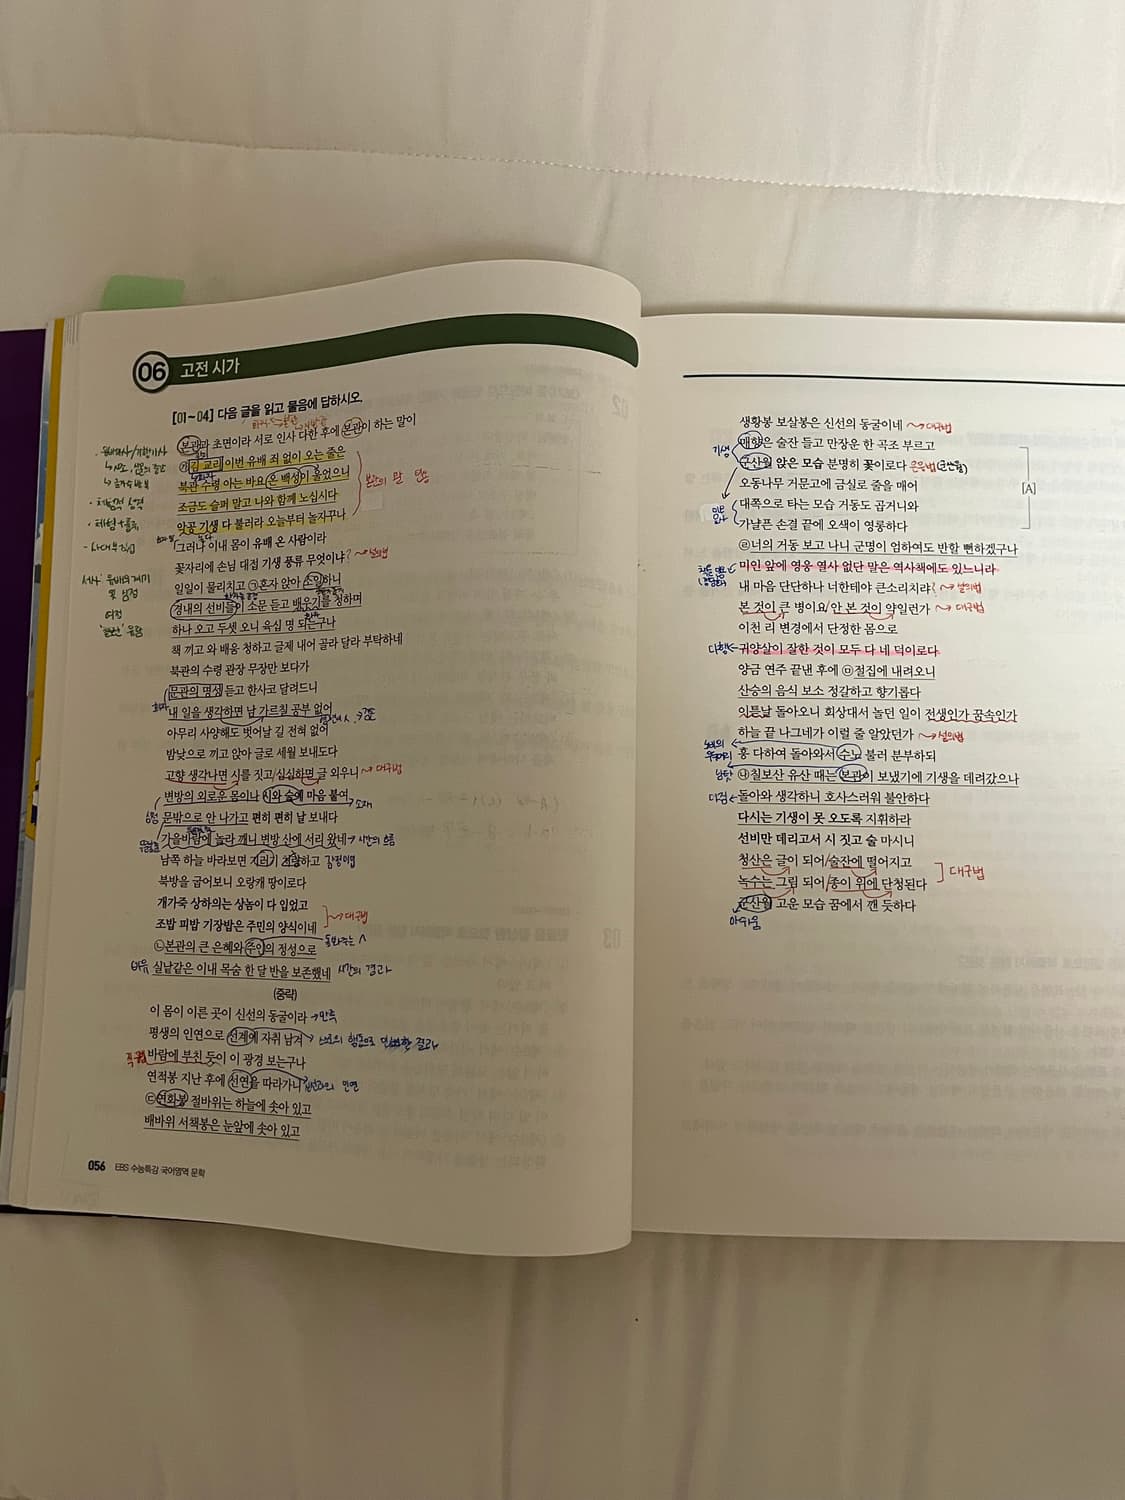 06 고전 시가
[01~04] 다음 글을 읽고 물음에 답하시오.
본관과 초면이라 서로 인사 다한 후에 본관이 하는 말이
김 교리 이번 유배 죄 없이 오는 줄은
북관 수령 아는 바요 온 백성이 울었으니
조금도 슬퍼 말고 나와 함께 노십시다
앗꼽 기생 다 불러라 오늘부터 놀자꾸나
본관의 말 인용
그러나 이내 몸이 유배 온 사람이라
꽃자리에 손님 대접 기생 풍류 무엇이냐? → 설의법
일일이 물리치고 ㉠혼자 앉아 소일하니
경내의 선비들이 소문 듣고 배우기를 청하며
하나 오고 두셋 오니 육십 명 되는구나
책 끼고 와 배움 청하고 글제 내어 골라 달라 부탁하네
북관의 수령 관장 무장만 보다가
문관의 명성 듣고 한사코 달려드니
내 일을 생각하면 남 가르칠 공부 없어
아무리 사양해도 벗어날 길 전혀 없어
밤낮으로 끼고 앉아 글로 세월 보내도다
고향 생각나면 시를 짓고/심심하면 글 외우니 → 대구법
변방의 외로운 몸이나 시와 술에 마음 붙여 → 소재
문밖으로 안 나가고 편히 편히 날 보내다
가을바람에 놀라 깨니 변방 산에 서리 왔네 → 시간의 흐름
남쪽 하늘 바라보면 기러기 처량하고 감정이입
북방을 굽어보니 오랑캐 땅이로다
개가죽 상하의는 상놈이 다 입었고
조밥 피밥 기장밥은 주민의 양식이네
→ 대구법
㉡본관의 큰 은혜와 주인의 정성으로
비유 실낱같은 이내 목숨 한 달 반을 보존했네 시간의 경과
(중략)
이 몸이 이른 곳이 신선의 동굴이라 → 만족
평생의 인연으로 선계에 자취 남겨
직유 바람에 부친 듯이 이 광경 보는구나
연적봉 지난 후에 선연을 따라가니
㉢연화봉 절바위는 하늘에 솟아 있고
배바위 서책봉은 눈앞에 솟아 있고
056 EBS 수능특강 국어영역 문학
생황봉 보살봉은 신선의 동굴이네 → 대구법
매향은 술잔 들고 만장운 한 곡조 부르고
기생
군산월 앉은 모습 분명히 꽃이로다 은유법(군산월)
오동나무 거문고에 금실로 줄을 매어
[A]
대쪽으로 타는 모습 거동도 곱거니와
가냘픈 손결 끝에 오색이 영롱하다
㉣너의 거동 보고 나니 군명이 엄하여도 반할 뻔하겠구나
미인 앞에 영웅 열사 없단 말은 역사책에도 있느니라
내 마음 단단하나 너한테야 큰소리치랴? → 설의법
본 것이 큰 병이요/안 본 것이 약일런가 → 대구법
이천 리 변경에서 단정한 몸으로
다행 ← 귀양살이 잘한 것이 모두 다 네 덕이로다
양금 연주 끝낸 후에 ㉤절집에 내려오니
산승의 음식 보소 정갈하고 향기롭다
이튿날 돌아오니 회상대서 놀던 일이 전생인가 꿈속인가
하늘 끝 나그네가 이럴 줄 알았던가 → 설의법
흥 다하여 돌아와서 수노 불러 분부하되
㉯칠보산 유산 때는 본관이 보냈기에 기생을 데려갔으나
돌아와 생각하니 호사스러워 불안하다
다시는 기생이 못 오도록 지휘하라
선비만 데리고서 시 짓고 술 마시니
청산은 글이 되어/술잔에 떨어지고
녹수는 그림 되어/종이 위에 단청된다
대구법
군산월 고운 모습 꿈에서 깬 듯하다
아쉬움